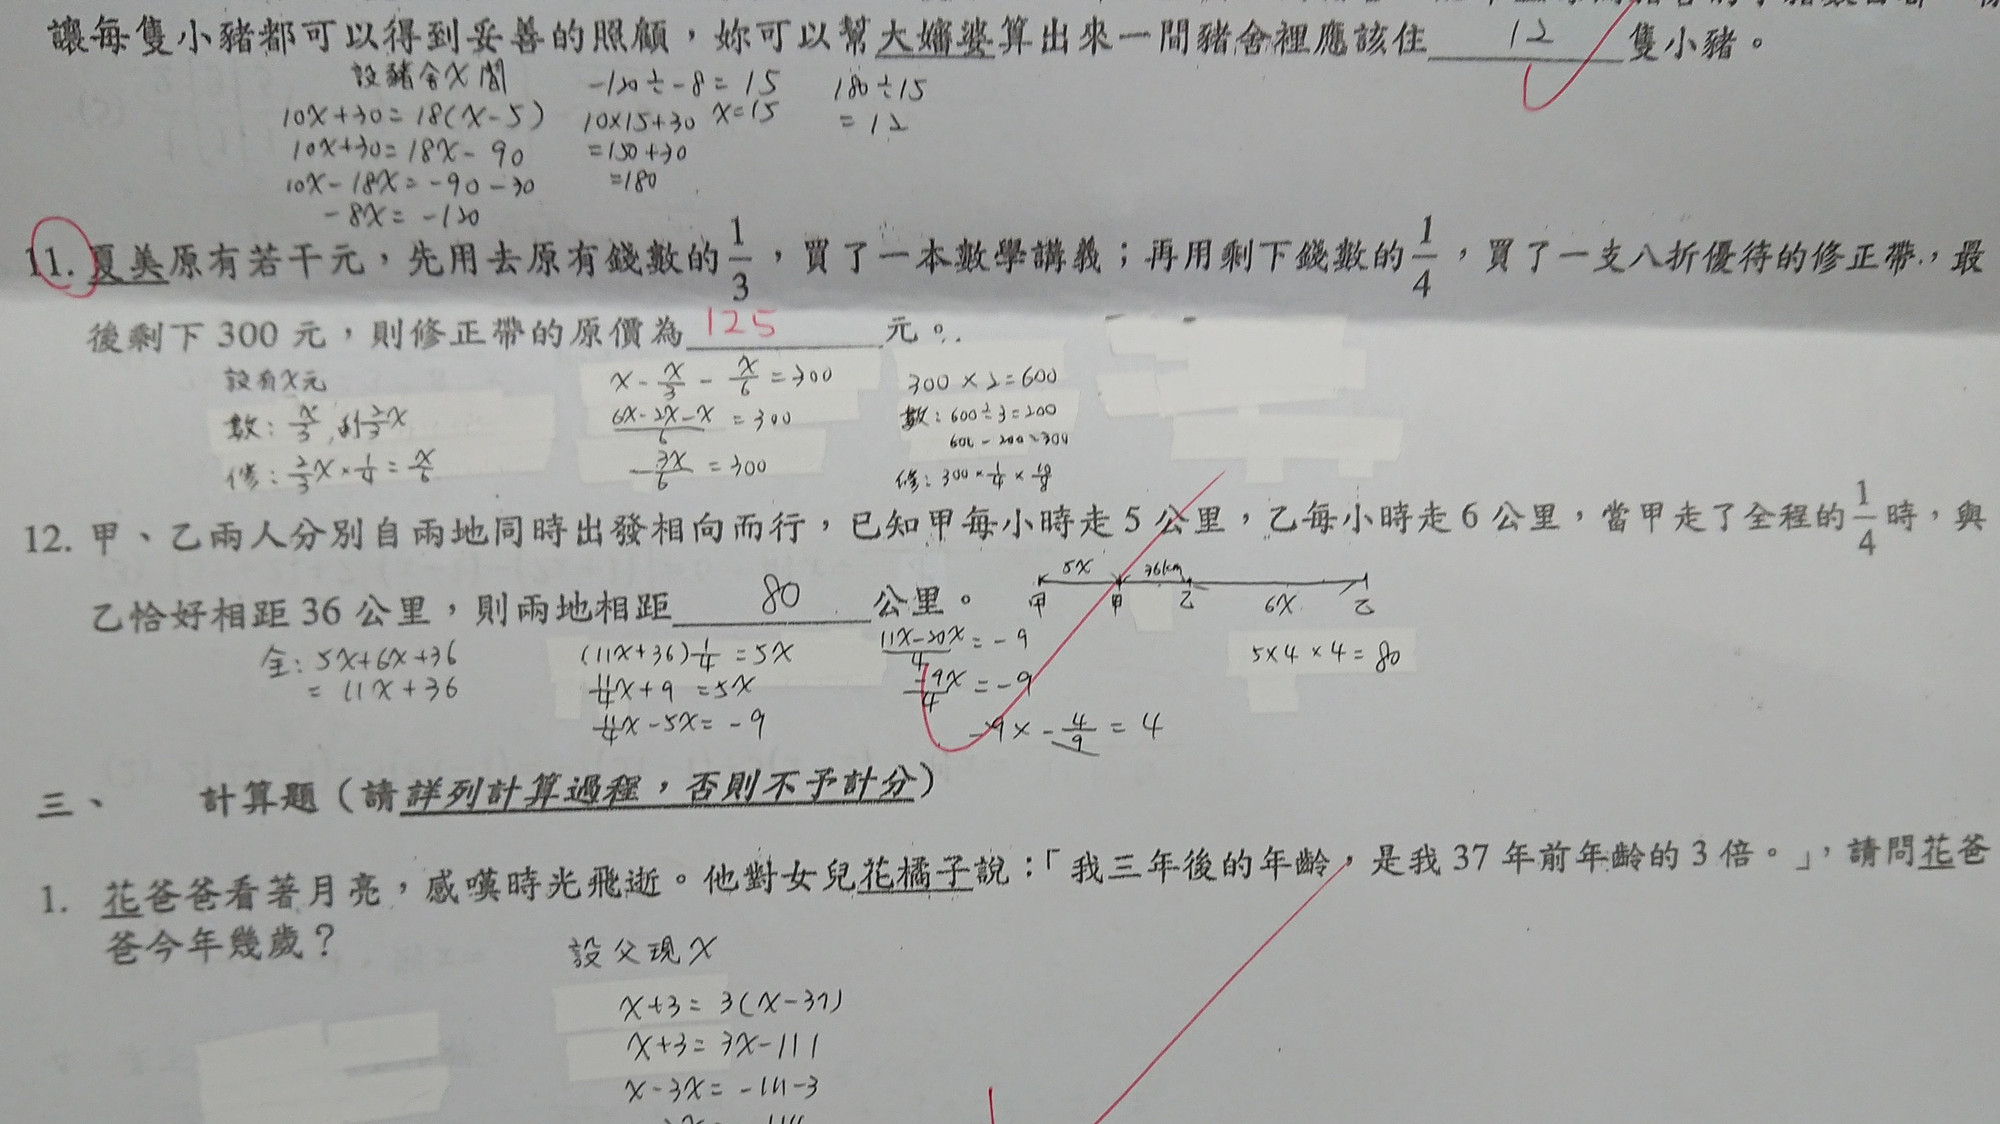 讓每隻小豬都可以得到妥善的照顧，妳可以幫大嬸婆算出來一間豬舍裡應該住 12 隻小豬。
設豬舍X間
10X+30=18(X-5)
10X+30=18X-90
10X-18X=-90-30
-8X=-120
-120÷-8=15
X=15
10×15+30
=150+30
=180
180÷15
=12
11. 夏美原有若干元，先用去原有錢數的1/3，買了一本數學講義；再用剩下錢數的1/4，買了一支八折優待的修正帶，最
後剩下 300 元，則修正帶的原價為 125 元。
設有X元
數：X/3,剩2/3X
修：2/3X×1/4=X/6
X-X/3-X/6=300
6X-2X-X/6=300
3X/6=300
300×2=600
數：600÷3=200
600-200=300
修：300×1/4×10/8
12. 甲、乙兩人分別自兩地同時出發相向而行，已知甲每小時走 5 公里，乙每小時走 6 公里，當甲走了全程的1/4時，與
乙恰好相距 36 公里，則兩地相距 80 公里。
5X 36km 6X
甲 甲 乙 乙
全：5X+6X+36
=11X+36
(11X+36)1/4=5X
11/4X+9=5X
11/4X-5X=-9
11X-20X/4=-9
-9X/4=-9
-9×-4/9=4
5×4×4=80
三、 計算題（請詳列計算過程，否則不予計分）
1. 花爸爸看著月亮，感嘆時光飛逝。他對女兒花橘子說：「我三年後的年齡，是我 37 年前年齡的 3 倍。」，請問花爸
爸今年幾歲？
設父現X
X+3=3(X-37)
X+3=3X-111
X-3X=-111-3